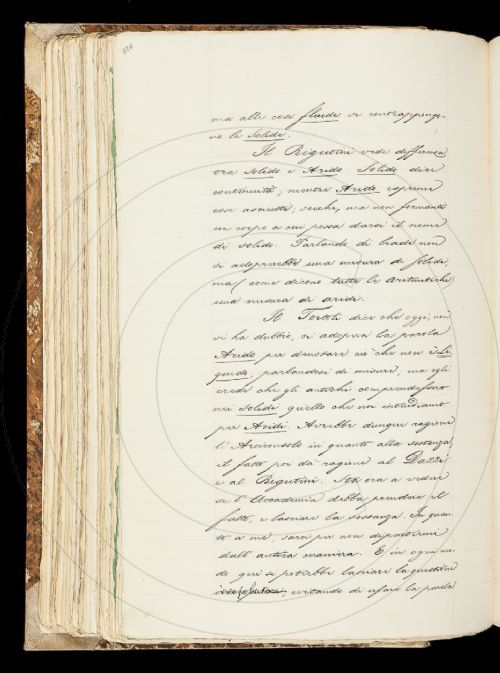 358
ma alle cose fluide si contrappongo-
no le Solide.
Il Rigutini vede differenza
tra Solido e Arido. Solido dice
continuità; mentre Arido esprime
cose asciutte, secche, ma non formanti
un corpo a cui possa darsi il nome
di solido. Parlando di biade non
si adoprerebbe una misura di Solidi,
ma, come dicono tutte le Aritmetiche,
una misura di aridi.
Il Tortoli dice che oggi, non
vi ha dubbio, si adopera la parola
Arido per denotare ciò che non è Li-
quido, parlandosi di misure, ma egli
crede che gli antichi comprendessero
nei Solidi quello che noi intendiamo
per Aridi. Avrebbe dunque ragione
l'Arciconsolo in quanto alla sostanza,
il fatto poi dà ragione al Dazzi
e al Rigutini. Sta ora a vedere
se l'Accademia debba prendere il
fatto, e lasciare la sostanza. In quan-
to a me, sarei per non dipartirmi
dall'antica maniera. E in ogni mo-
do qui si potrebbe lasciare la questione
evitando di usare la parola